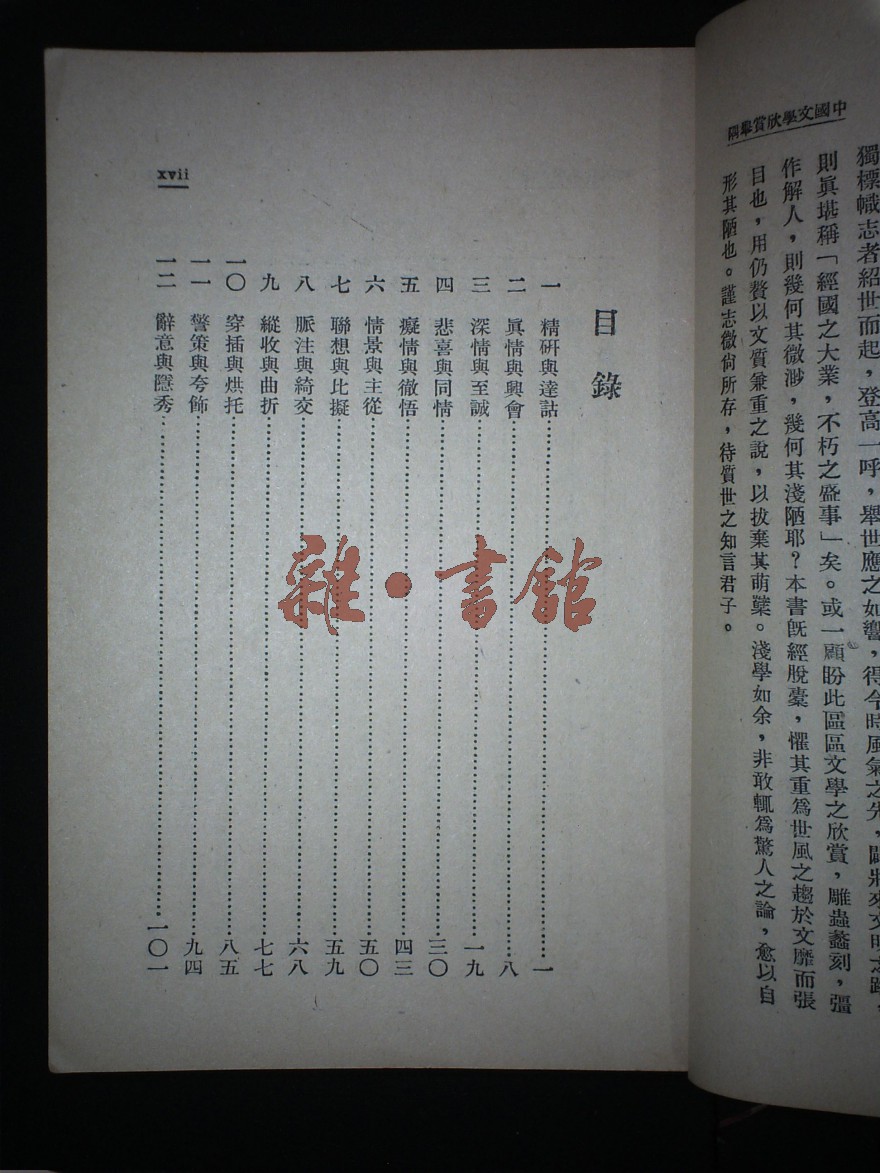 中國文學欣賞舉隅
獨標幟志者紹世而起，登高一呼，舉世應之如響，得今時風氣之先，闢將來文明之路，
則眞堪稱「經國之大業，不朽之盛事」矣。或一顧盼此區區文學之欣賞，雕蟲蠡刻，彊
作解人，則幾何其微渺，幾何其淺陋耶？本書旣經脫稾，懼其重爲世風之趨於文靡而張
目也，用仍贅以文質兼重之說，以拔棄其萌蘖。淺學如余，非敢輒爲驚人之論，愈以自
形其陋也。謹志微尙所存，待質世之知言君子。
xvii
目錄
一 精硏與達詁 一
二 眞情與興會 八
三 深情與至誠 一九
四 悲喜與同情 三〇
五 癡情與徹悟 四三
六 情景與主從 五〇
七 聯想與比擬 五九
八 脈注與綺交 六八
九 縱收與曲折 七七
一〇 穿插與烘托 八五
一一 警策與夸飾 九四
一二 辭意與隱秀 一〇一
雜·書館